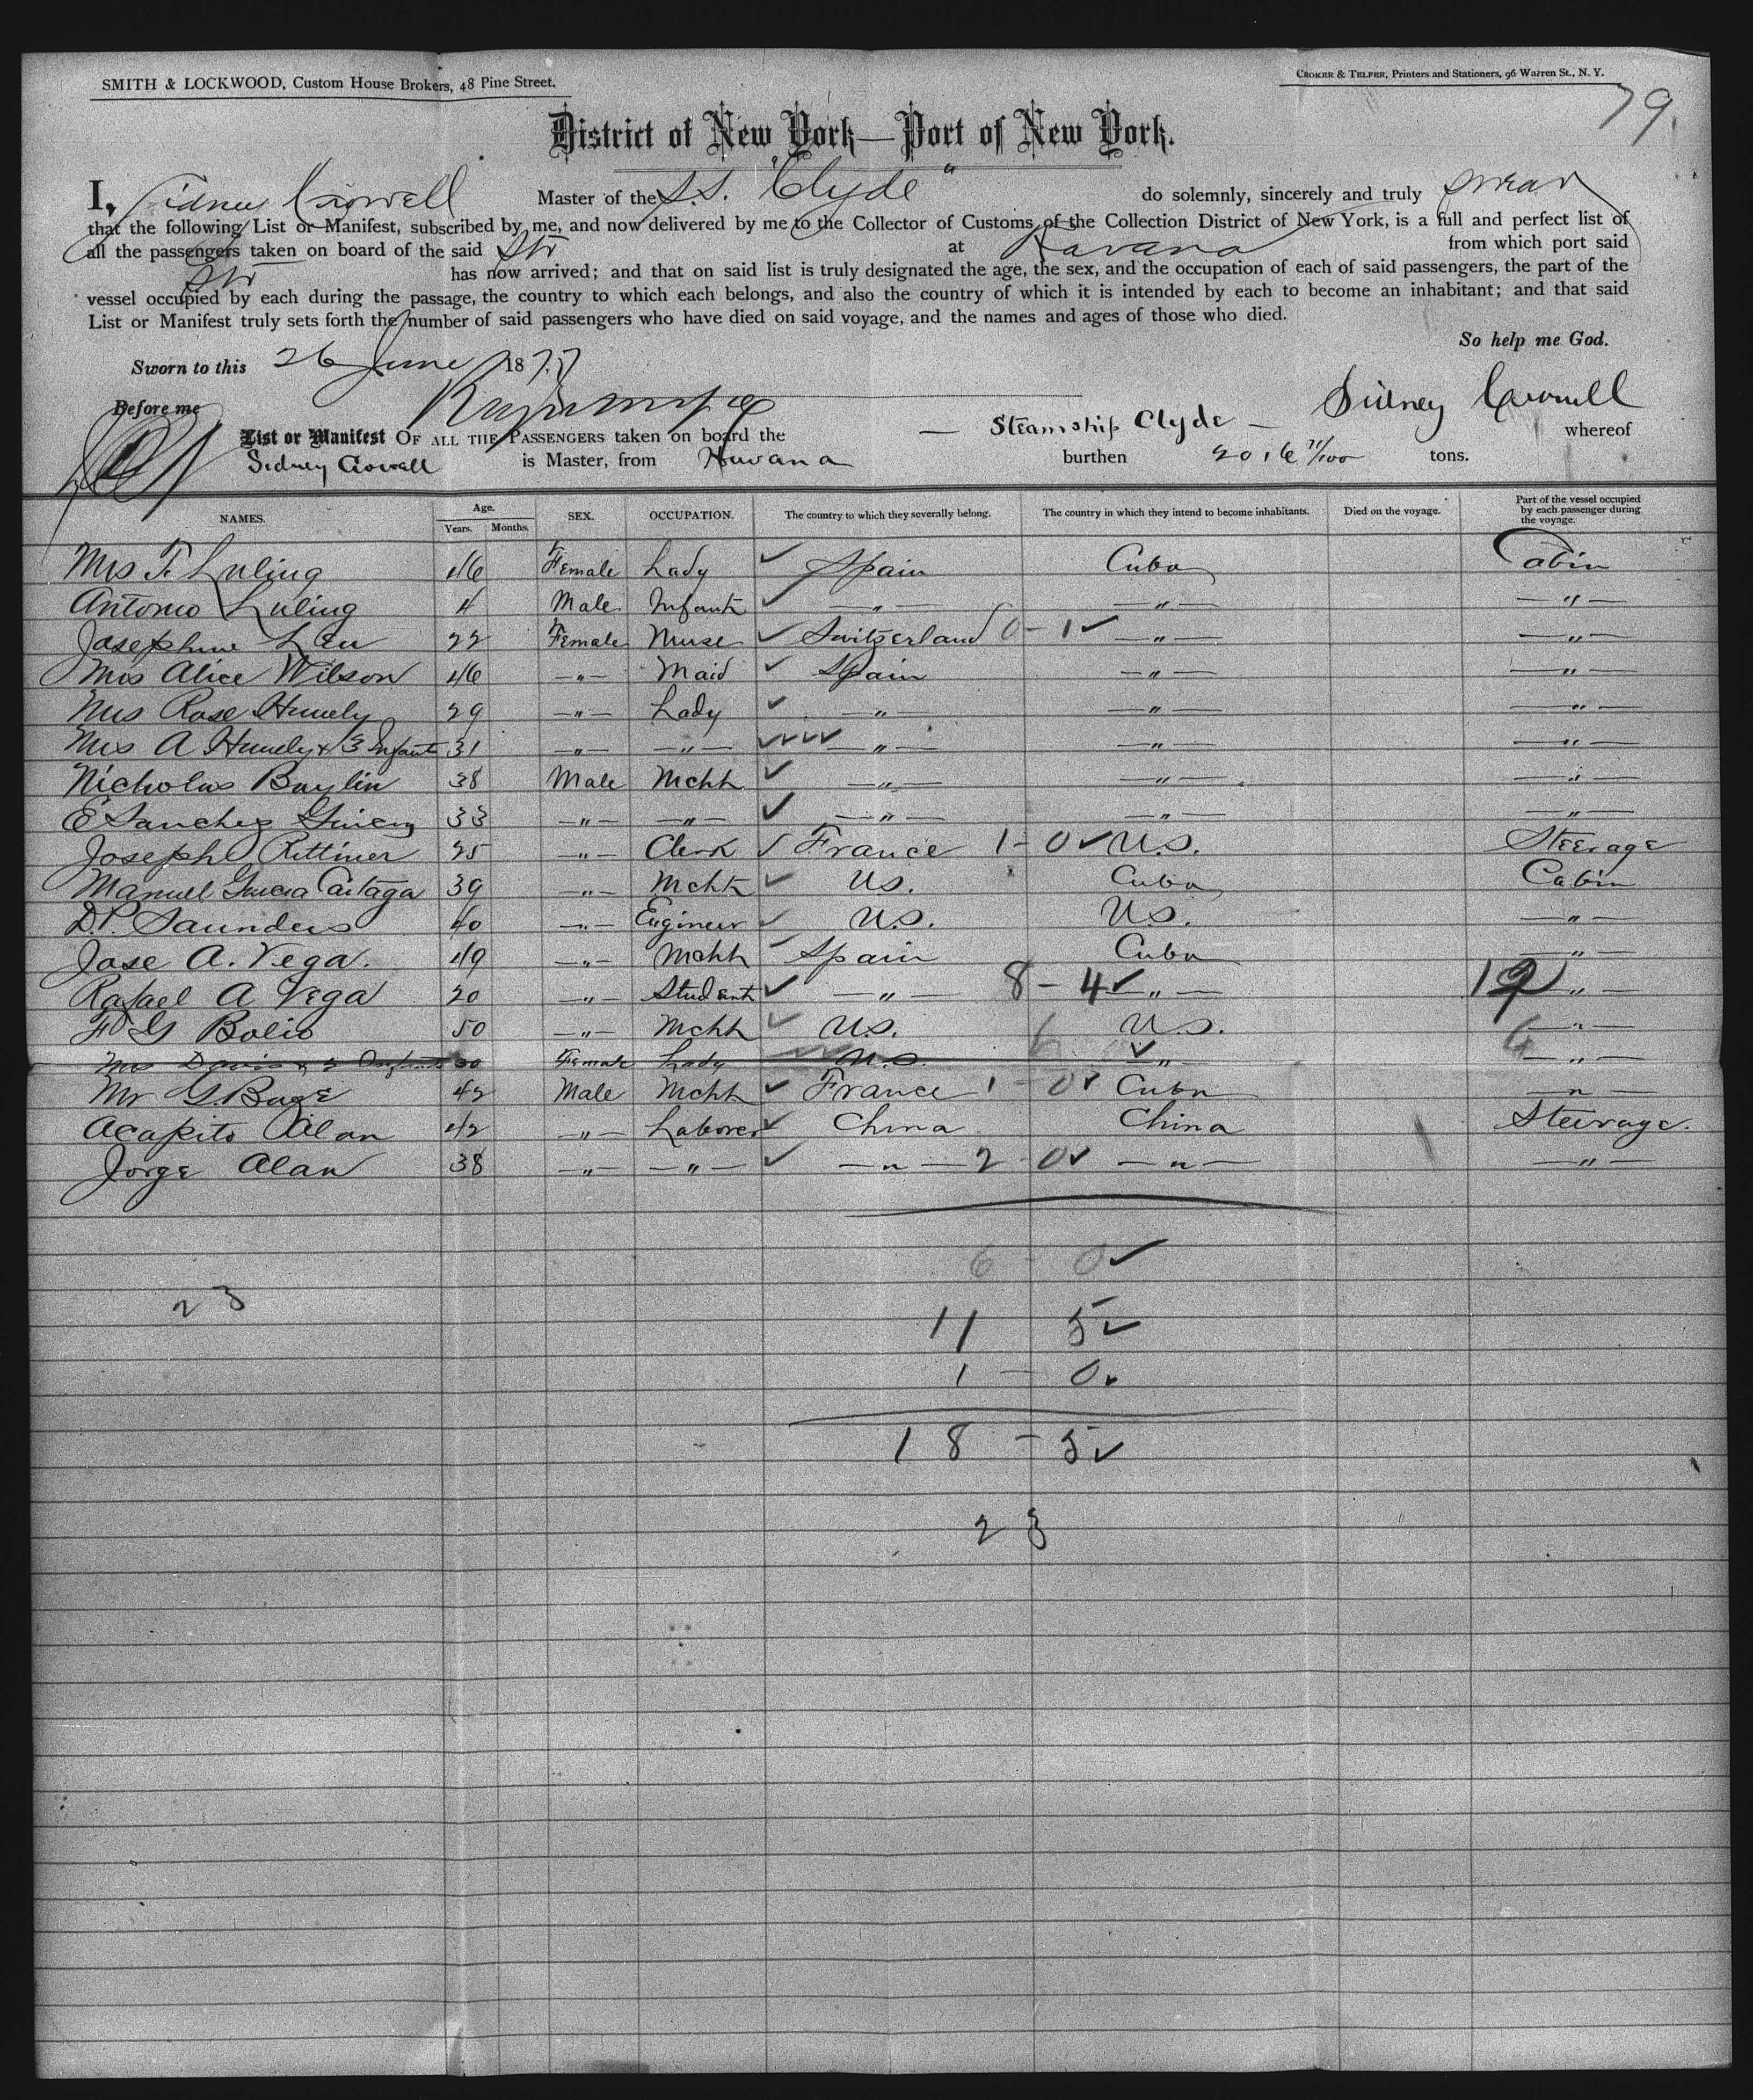 SMITH & LOCKWOOD, Custom House Brokers, 48 Pine Street.
CROKER & TELFER, Printers and Stationers, 96 Warren St., N. Y.
79.
District of New York—Port of New York.
I, Sidney Crowell Master of the S.S. "Clyde" do solemnly, sincerely and truly swear
that the following List or Manifest, subscribed by me, and now delivered by me to the Collector of Customs of the Collection District of New York, is a full and perfect list of
all the passengers taken on board of the said Str at Havana from which port said
Str has now arrived; and that on said list is truly designated the age, the sex, and the occupation of each of said passengers, the part of the
vessel occupied by each during the passage, the country to which each belongs, and also the country of which it is intended by each to become an inhabitant; and that said
List or Manifest truly sets forth the number of said passengers who have died on said voyage, and the names and ages of those who died.
So help me God.
Sworn to this 26 June 1877
Before me
Sidney Crowell
List or Manifest OF ALL THE PASSENGERS taken on board the — Steamship Clyde — whereof
Sidney Crowell is Master, from Havana burthen 2016 71/100 tons.
NAMES. Age. Years. Months. SEX. OCCUPATION. The country to which they severally belong. The country in which they intend to become inhabitants. Died on the voyage. Part of the vessel occupied by each passenger during the voyage.
Mrs F. Luling 46 Female Lady ✓ Spain Cuba Cabin
Antonio Luling 4 Male Infant ✓ —"— —"— —"—
Josephine Leu 22 Female Nurse ✓ Switzerland 0-1✓ —"— —"—
Mrs Alice Wilson 46 —"— Maid ✓ Spain —"— —"—
Mrs Rose 29 —"— Lady ✓ —"— —"— —"—
Mrs A & 3 Infants 31 —"— —"— ✓✓✓✓ —"— —"— —"—
Nicholas Baylin 38 Male Mcht ✓ —"— —"— —"—
E Sanchez 33 —"— —"— ✓ —"— —"— —"—
Joseph Rettiner 25 —"— Clerk ✓ France 1-0✓ U.S. Steerage
Manuel Garcia 39 —"— Mcht ✓ U.S. Cuba Cabin
D.P. Saunders 40 —"— Engineer ✓ U.S. U.S. —"—
Jose A. Vega. 49 —"— Mcht ✓ Spain Cuba —"—
Rafael A Vega 20 —"— Student ✓ —"— 8-4✓ —"— —"—
F G Bolio 50 —"— Mcht ✓ U.S. 6 U.S. —"—
Mrs Davis & 2 Infants 30 Female Lady U.S. ✓ —"— —"—
Mr G. Buge 42 Male Mcht ✓ France 1-0✓ Cuba —"—
Acapito Alan 42 —"— Laborer ✓ China China Steerage.
Jorge Alan 38 —"— —"— ✓ —"— 2-0✓ —"— —"—
6 - 0✓
23
11 5✓
1 - 0✓
18 - 5✓
23